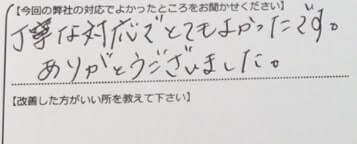 【今回の弊社の対応でよかったところをお聞かせください】
丁寧な対応でとてもよかったです。
ありがとうございました。
【改善した方がいい所を教えて下さい】